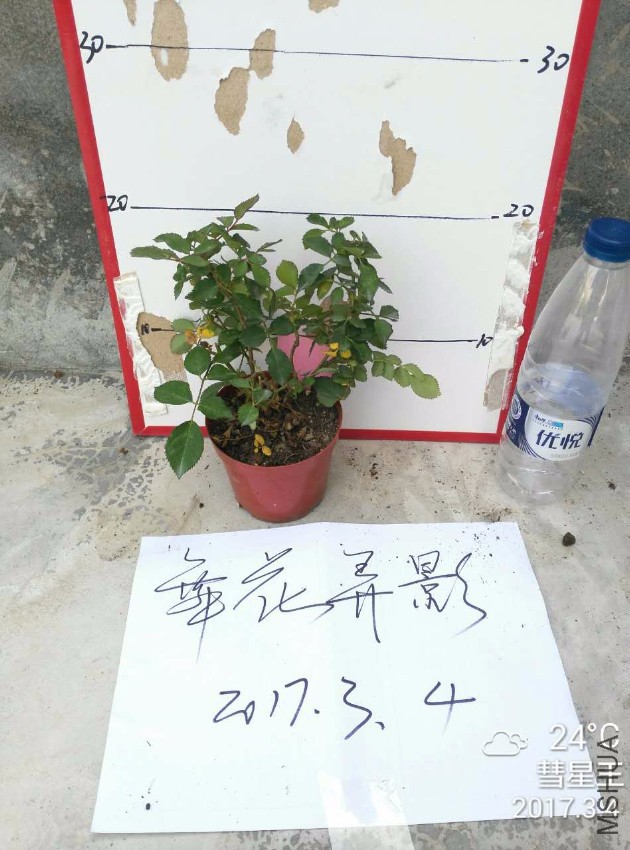 30 30
20 20
10 10
优悦
舞花弄影
2017.3.4
24°C
彗星王
2017.3.4
MSHUA